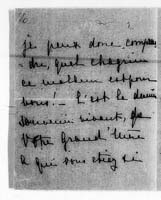 je peux donc compren
dre quel chagrin
ce malheur est pour
vous! - C'est le dernier
souvenir vivant, de
votre Grand'Mère
à qui vous étiez si